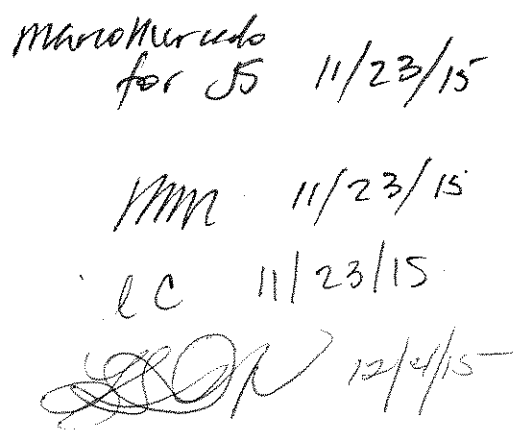 Marco Mercado
for JS 11/23/15
MM 11/23/15
lC 11/23/15
12/4/15